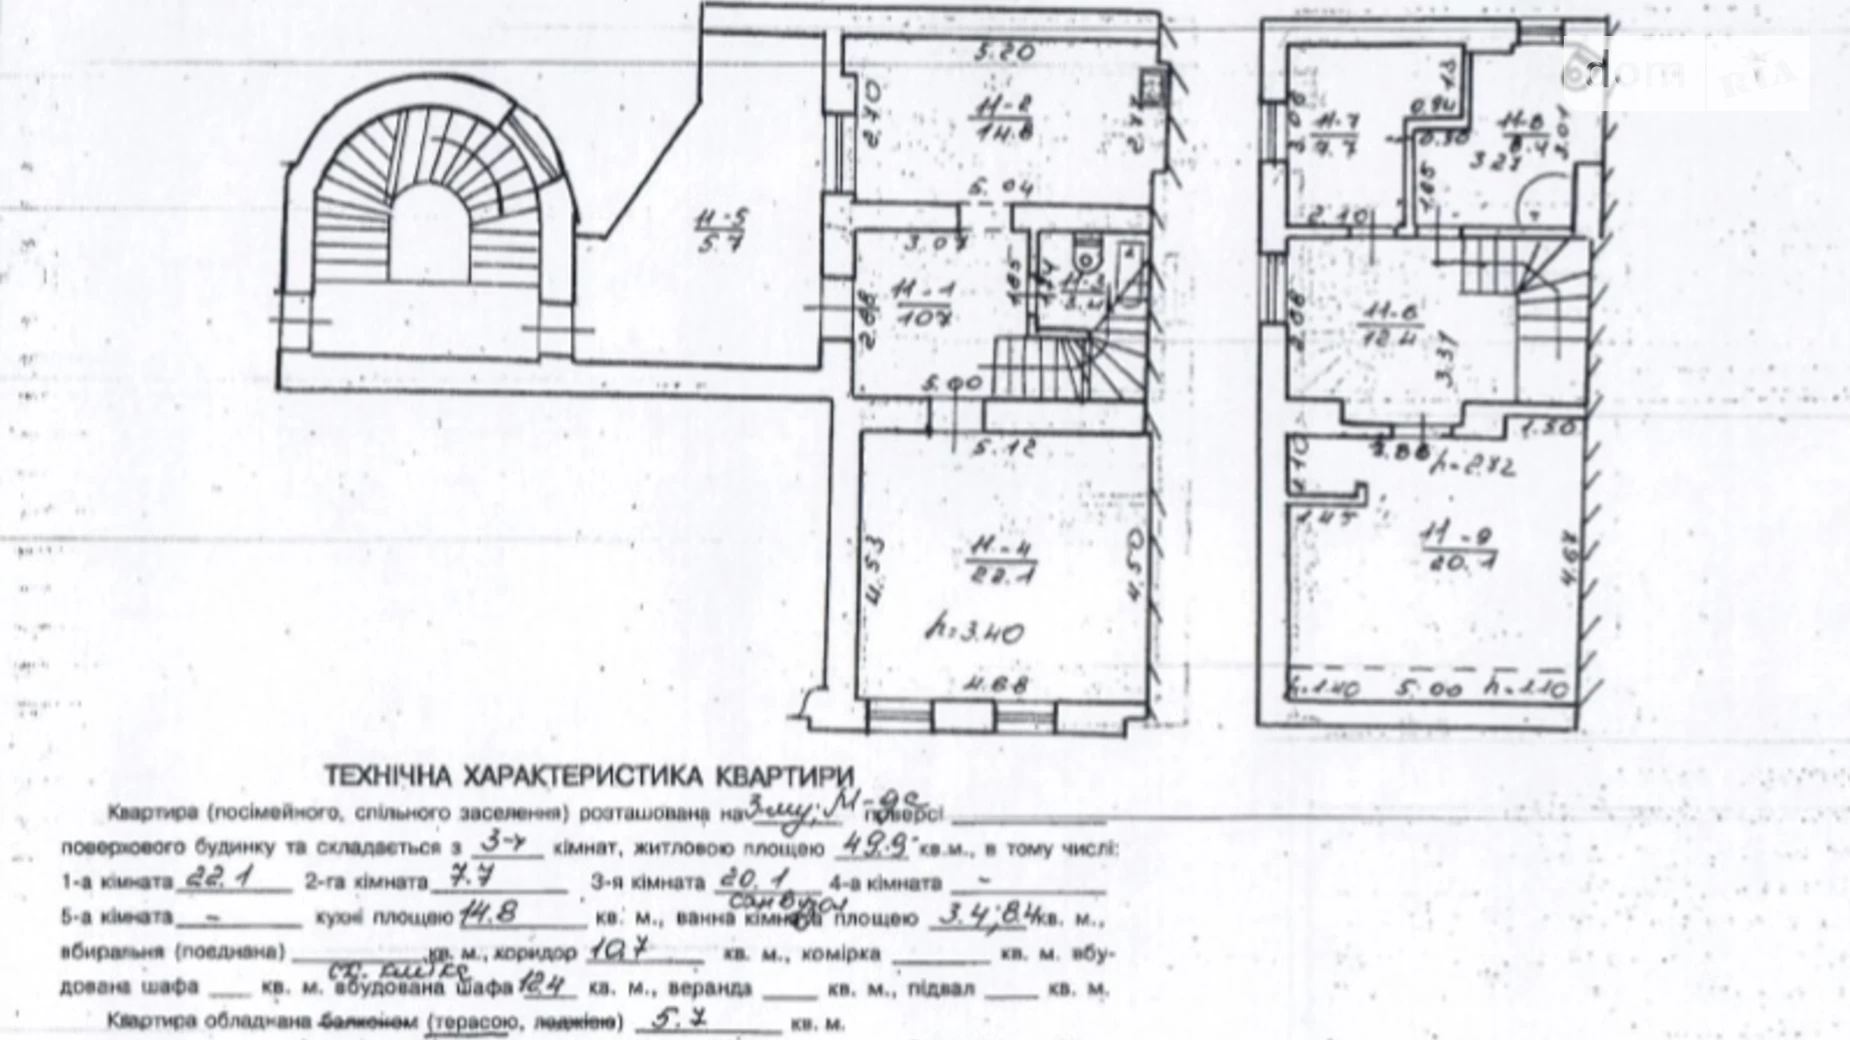 5.20
2.70
11-2
14.8
2.77
5.04
11-5
5.7
3.07
11-1
10.7
2.88
1.85
11-3
3.4
5.00
5.12
11-4
22.1
4.53
4.50
h=3.40
4.68
1.3
0.94
0.50
11-7
7.7
11-8
8.4
3.01
3.27
1.85
2.10
2.88
11-6
12.4
3.37
1.50
1.10
h=2.72
1.45
11-9
20.1
4.67
h=1.40 5.00 h=1.10
dom ria
ТЕХНІЧНА ХАРАКТЕРИСТИКА КВАРТИРИ
Квартира (посімейного, спільного заселення) розташована на 3-му, М-де поверсі
поверхового будинку та складається з 3-х кімнат, житловою площею 49.9 кв.м., в тому числі:
1-а кімната 22.1 2-га кімната 7.7 3-я кімната 20.1 4-а кімната -
санвузол
5-а кімната - кухні площею 14.8 кв. м., ванна кімната площею 3.4; 8.4 кв. м.,
вбиральня (поєднана) кв. м., коридор 10,7 кв. м., комірка кв. м. вбу-
сх. клітка
дована шафа кв. м. вбудована шафа 12.4 кв. м., веранда кв. м., підвал кв. м.
Квартира обладнана балконом (терасою, лоджією) 5.7 кв. м.